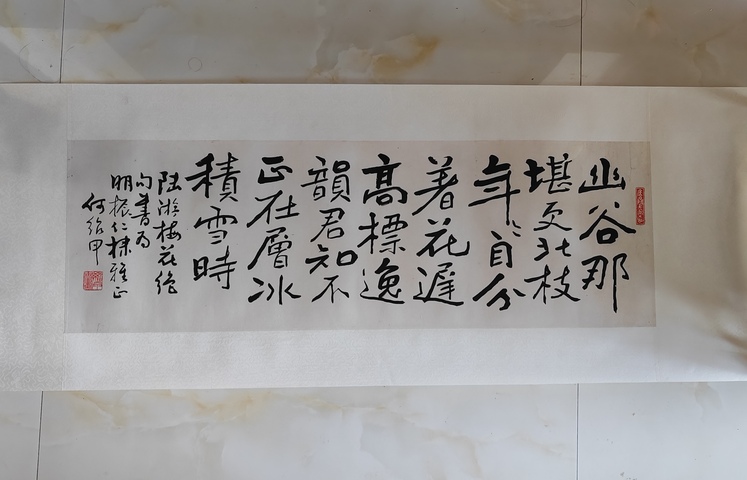 幽谷那
堪更北枝
年々自分
着花遲
高標逸
韻君知不
正在層冰
積雪時
陸游梅花絕
句書為
明振仁棣雅正
何紹甲